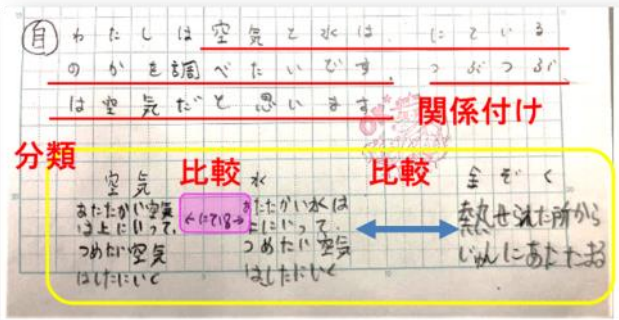 自 わたしは空気と水は にている
のかを調べたいです。つぶつぶ
は空気だと思います
関係付け
分類
比較
比較
空気
あたたかい空気
は上にいって、
つめたい空気
はしたにいく
←にている→
水
あたたかい水は
上にいって、
つめたい空気
はしたにいく
金ぞく
熱せられた所から
じゅんにあたたまる